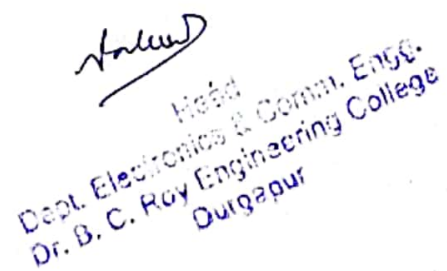 Head
Dept. Electronics & Comm. Engg.
Dr. B. C. Roy Engineering College
Durgapur